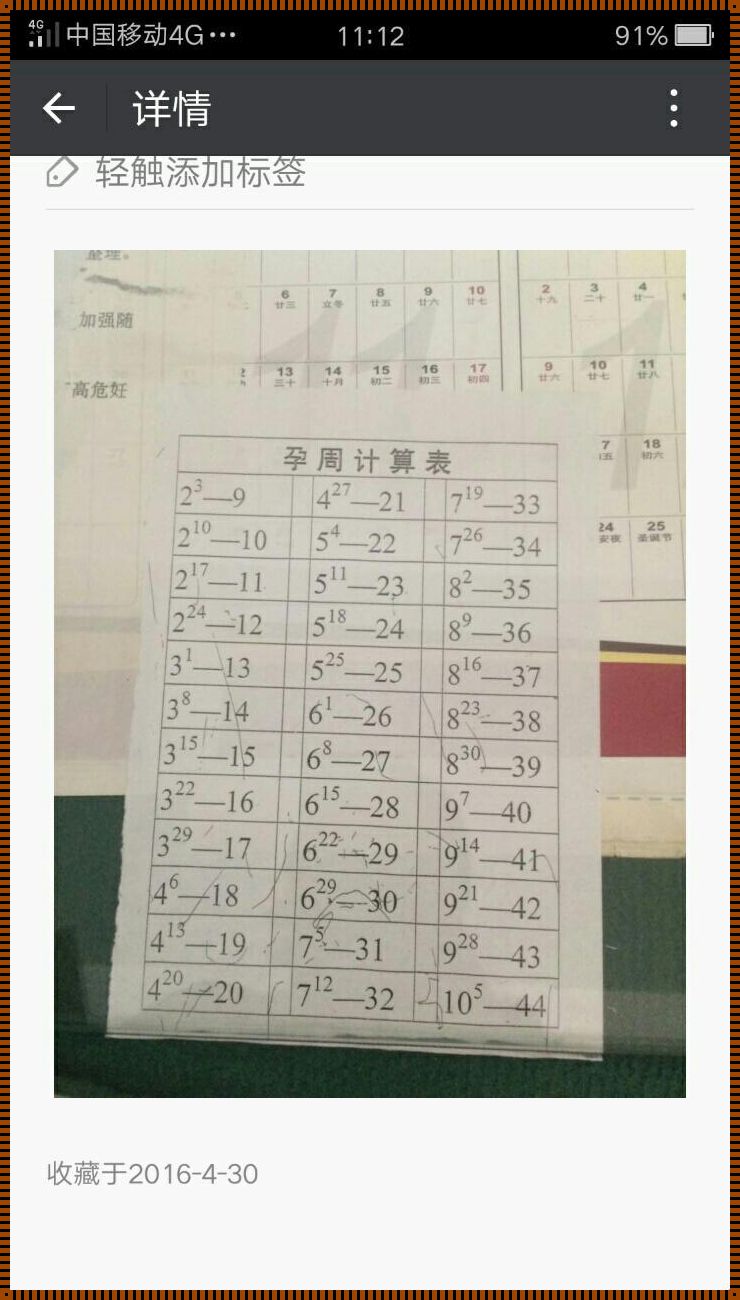 4G 中国移动4G··· 11:12 91%
详情
轻触添加标签
整理。
加强随
高危妊
6 7 8 9 10
廿三 立冬 廿五 廿六 廿七
13 14 15 16 17
三十 十月 初二 初三 初四
2 3 4
十九 二十 廿一
9 10 11
廿六 廿七 廿八
7 18
五 初六
24 25
安夜 圣诞节
孕周计算表
2³—9 4²⁷—21 7¹⁹—33
2¹⁰—10 5⁴—22 7²⁶—34
2¹⁷—11 5¹¹—23 8²—35
2²⁴—12 5¹⁸—24 8⁹—36
3¹—13 5²⁵—25 8¹⁶—37
3⁸—14 6¹—26 8²³—38
3¹⁵—15 6⁸—27 8³⁰—39
3²²—16 6¹⁵—28 9⁷—40
3²⁹—17 6²²—29 9¹⁴—41
4⁶—18 6²⁹—30 9²¹—42
4¹³—19 7⁵—31 9²⁸—43
4²⁰—20 7¹²—32 10⁵—44
收藏于2016-4-30